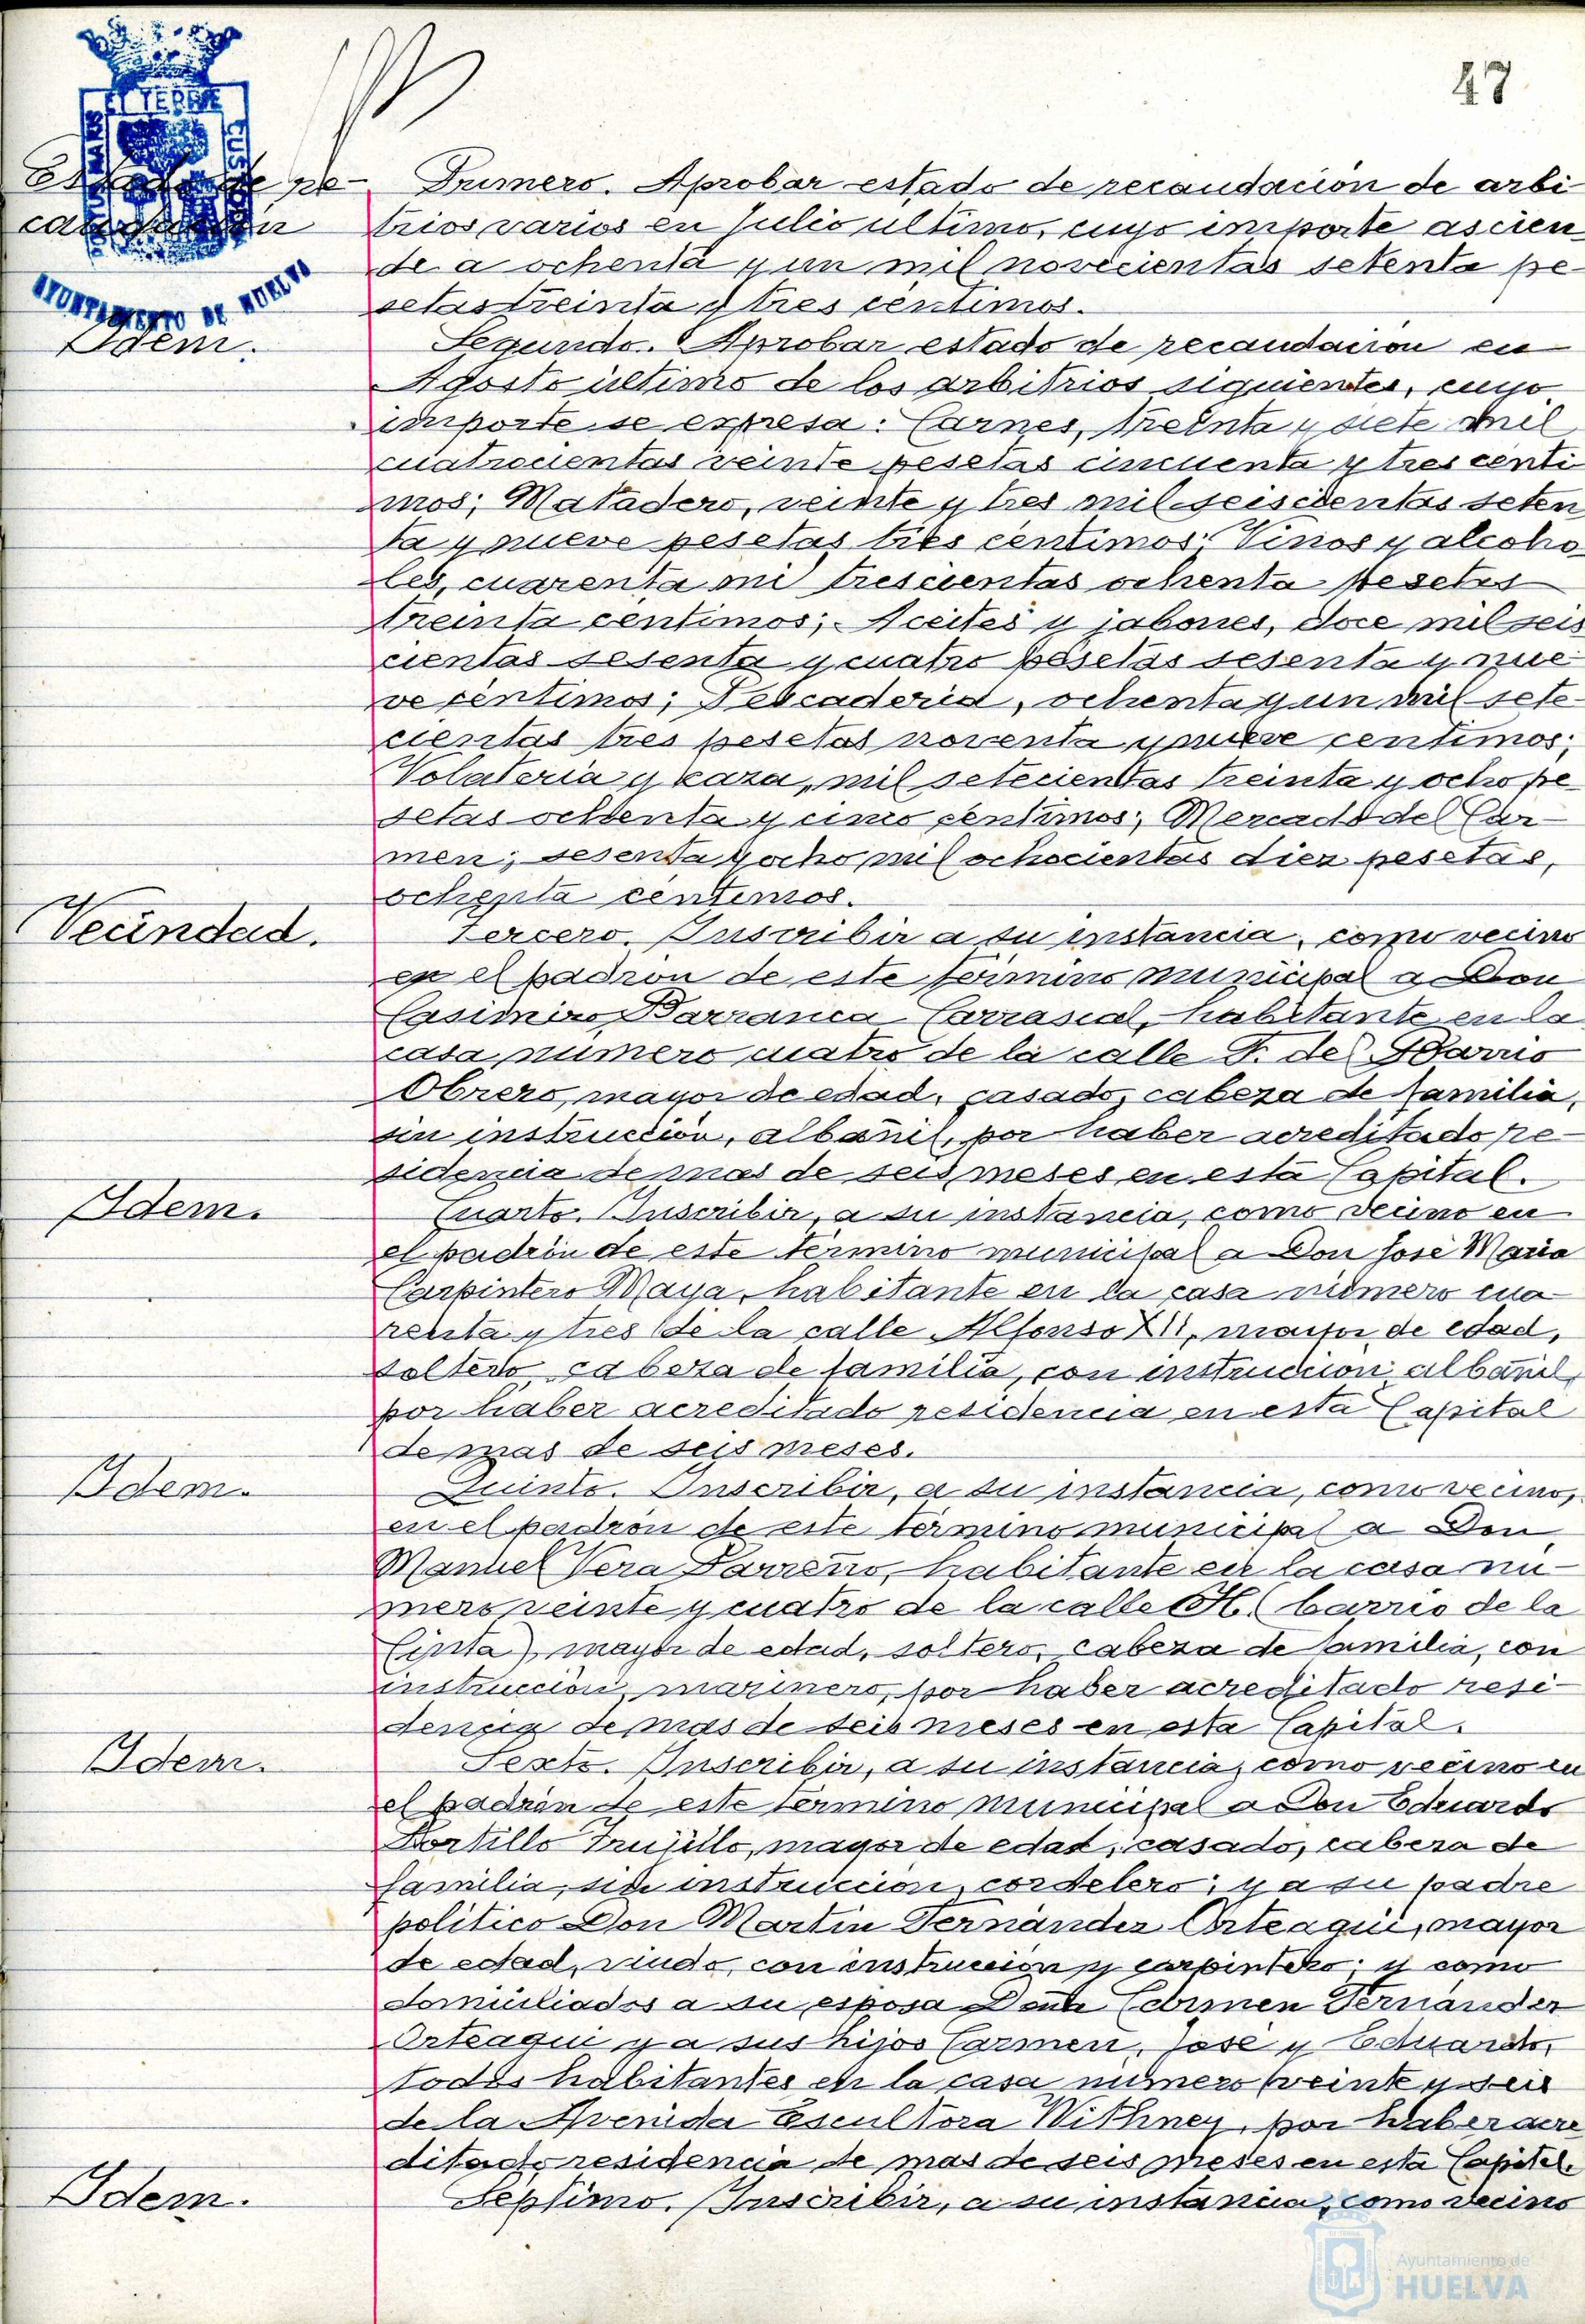 47
Estado de re-
caudación
AYUNTAMIENTO DE HUELVA
Primero. Aprobar estado de recaudación de arbi-
trios varios en Julio ultimo, cuyo importe ascien
de a ochenta y un mil novecientas setenta pe-
setas treinta y tres centimos.
Idem.
Segundo. Aprobar estado de recaudacion en
Agosto último de los arbitrios siguientes, cuyo
importe se expresa: Carnes, treinta y siete mil
cuatrocientas veinte pesetas cincuenta y tres centi
mos; Matadero, veinte y tres mil seiscientas seten
ta y nueve pesetas tres centimos; Vinos y alcoho-
les, cuarenta mil trescientas ochenta pesetas
treinta centimos; Aceites y jabones, doce mil seis
cientas sesenta y cuatro pesetas sesenta y nue-
ve centimos; Pescaderia, ochenta y un mil sete-
cientas tres pesetas noventa y nueve centimos;
Volateria y caza, mil setecientas treinta y ocho pe-
setas ochenta y cinco centimos; Mercado del Car-
men; sesenta y ocho mil ochocientas diez pesetas,
ochenta centimos.
Vecindad.
Tercero. Inscribir a su instancia, como vecino
en el padrón de este término municipal a Don
Casimiro Barranca Carrascal, habitante en la
casa número cuatro de la calle F. del Barrio
Obrero, mayor de edad, casado, cabeza de familia,
sin instrucción, albañil, por haber acreditado re-
sidencia de mas de seis meses en esta Capital.
Idem.
Cuarto. Inscribir, a su instancia, como vecino en
el padrón de este término municipal a Don José Maria
Carpintero Maya, habitante en la casa número cua-
renta y tres de la calle Alfonso XII, mayor de edad,
soltero cabeza de familia, con instruccion albañil,
por haber acreditado residencia en esta Capital
de mas de seis meses.
Idem.
Quinto. Inscribir, a su instancia, como vecino,
en el padrón de este término municipal a Don
Manuel Vera Parreño, habitante en la casa nú-
mero veinte y cuatro de la calle H. (barrio de la
Cinta), mayor de edad, soltero, cabeza de familia, con
instrucción, marinero, por haber acreditado resi-
dencia de mas de seis meses en esta Capital.
Idem.
Sexto. Inscribir, a su instancia, como vecino en
el padrón de este término municipal a Don Eduardo
Portillo Trujillo, mayor de edad, casado, cabeza de
familia, sin instrucción, cordelero; y a su padre
politico Don Martin Fernández Orteagui, mayor
de edad, viudo, con instrucción y carpintero; y como
domiciliados a su esposa Doña Carmen Fernández
Orteagui y a sus hijos Carmen, José y Eduardo,
todos habitantes en la casa número veinte y seis
de la Avenida Escultora Withney, por haber acre
ditado residencia de mas de seis meses en esta Capital.
Idem.
Séptimo. Inscribir, a su instancia, como vecino
Ayuntamiento de
HUELVA